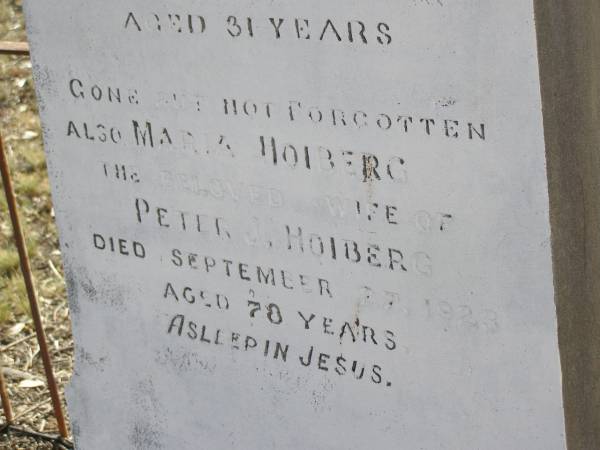 AGED 31 YEARS
GONE BUT NOT FORGOTTEN
ALSO MARIA HOIBERG
THE BELOVED WIFE OF
PETER J. HOIBERG
DIED SEPTEMBER 27, 1923
AGED 78 YEARS.
ASLEEP IN JESUS.